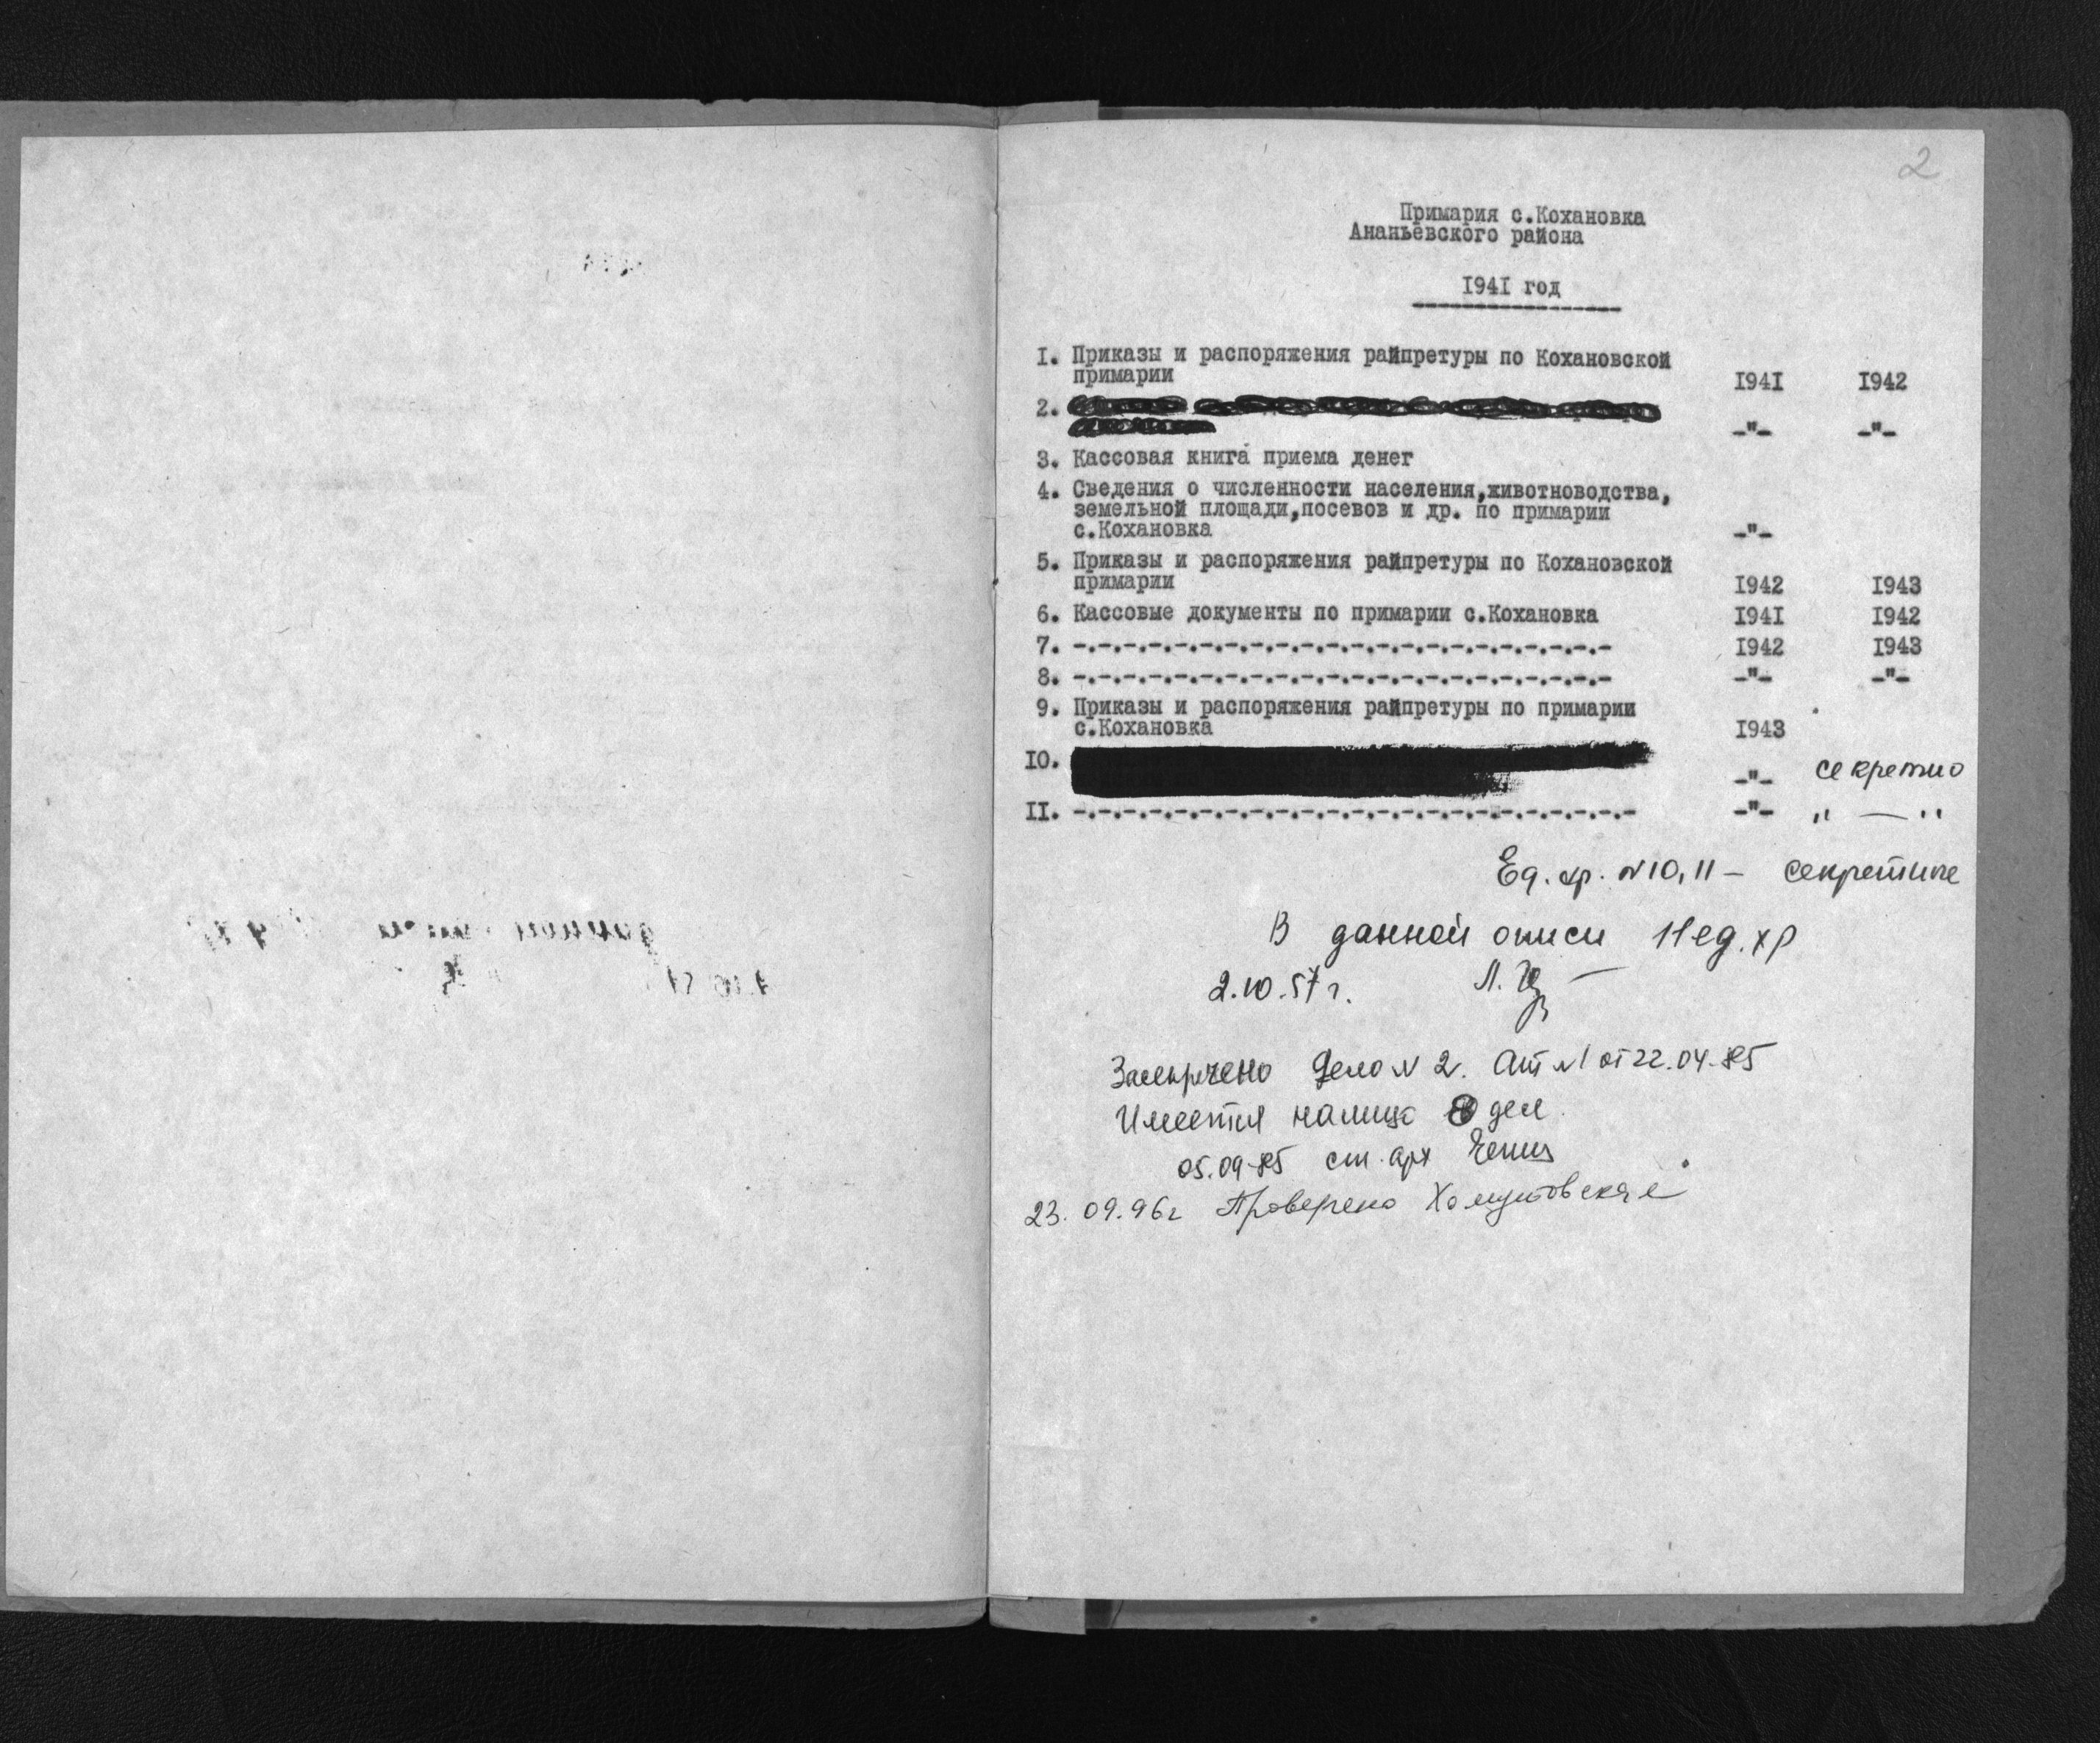 2
Примария с.Кохановка
Ананьевского района
1941 год
1. Приказы и распоряжения райпретуры по Кохановской
примарии 1941 1942
2.
-"- -"-
3. Кассовая книга приема денег
4. Сведения о численности населения,животноводства,
земельной площади,посевов и др. по примарии
с.Кохановка -"-
5. Приказы и распоряжения райпретуры по Кохановской
примарии 1942 1943
6. Кассовые документы по примарии с.Кохановка 1941 1942
7. -.-.-.-.-.-.-.-.-.-.-.-.-.-.-.-.-.-.-.-.-.- 1942 1943
8. -.-.-.-.-.-.-.-.-.-.-.-.-.-.-.-.-.-.-.-.-.- -"- -"-
9. Приказы и распоряжения райпретуры по примарии
с.Кохановка 1943
10. -"- секретно
11. -.-.-.-.-.-.-.-.-.-.-.-.-.-.-.-.-.-.-.-.-.-.- -"- " — "
Ед. хр. №10, 11 — секретные
В данной описи 11 ед. хр
2.10.57 г.
Засекречено дело №2. Акт №1 от 22.04.85
Имеется налицо 8 дел.
05.09.85 ст. арх
23.09.96г Проверено Хомутовская